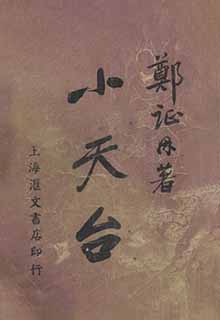 鄭証因著
小天台
上海滙文書店印行